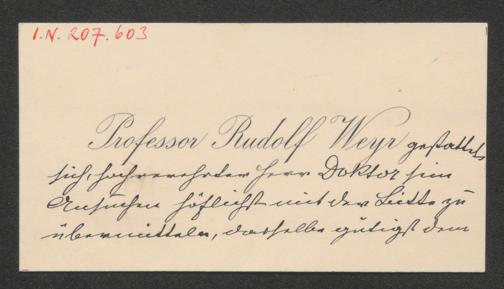 I.N. 207.603
Professor Rudolf Weyr gestattet
sich, hochverehrter Herr Doktor sein
Ansuchen höflichst mit der Bitte zu
übermitteln, dasselbe gütigst dem